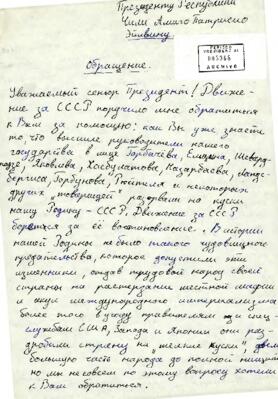 Президенту Республики
Чили Амаго Патрисио
Эйлвину
PERIODO
PRESIDENCIAL
005365
ARCHIVO
Обращение.
Уважаемый сеньор Президент! Движе-
ние за СССР поручило мне обратиться
к Вам за помощью: как Вы уже знаете
то что высшие руководители нашего
государства в лице Горбачёва, Ельцина, Шевард-
надзе, Яковлева, Хасбулатова, Назарбаева, Ландс-
бергиса, Горбунова, Рюйтеля и некоторых
других "товарищей" разорвали на куски
нашу Родину - СССР, Движение за СССР
борется за её восстановление. В истории
нашей Родины не было такого чудовищного
предательства, которое допустили эти
изменники, отдав трудовой народ своей
страны на растерзание местной мафии
и акул международного империализма
более того в угоду правителям и спец-
службам США, Запада и Японии они раз-
дробили страну на "мелкие куски",
большую часть народа до полной нищеты
но мы не совсем по этому вопросу хотели
к Вам обратиться.